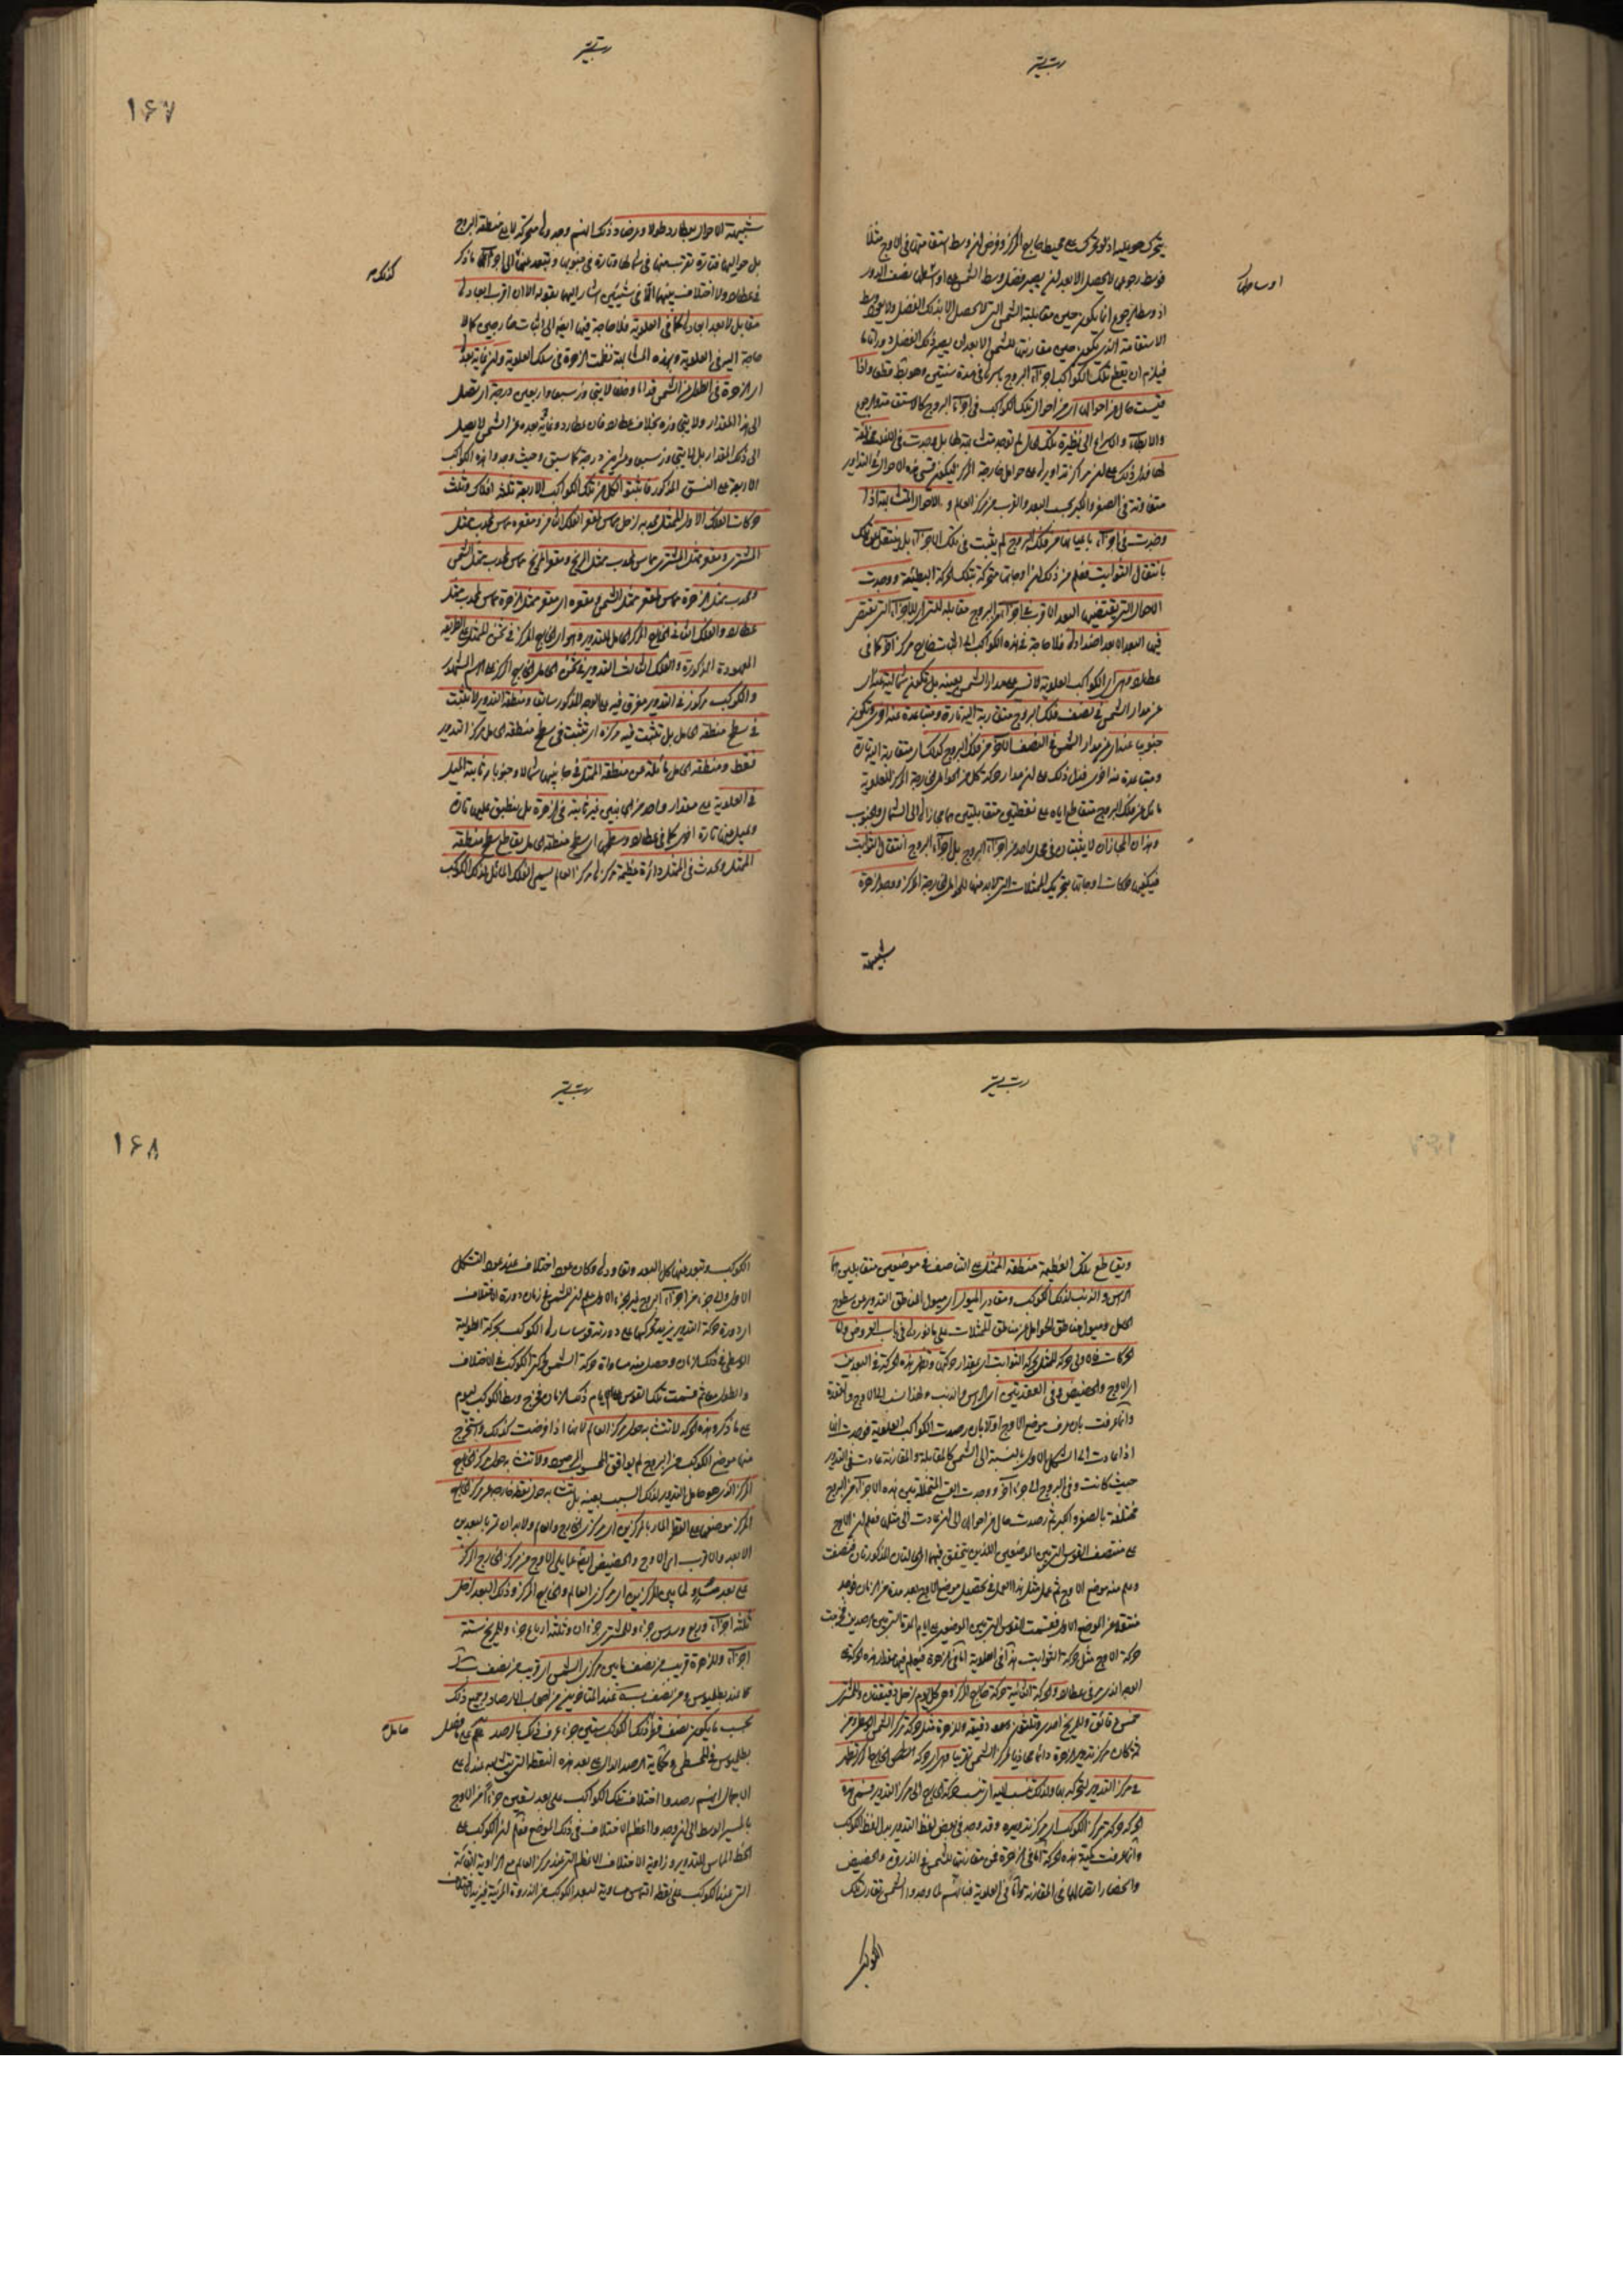 رب يسر
اوساطها
يتحرك حواليه اذ لو تحرك على محيط خارج المركز وفرض ان وسط استقامتها فى الاوج مثلا
فوسط رجوعها لا يحصل الا بعد ان يصير فضل وسط الشمس على نصف الدور
اذ وسط الرجوع انما يكون حين مقابلته الشمس التى لا تحصل الا بذلك الفضل ولا يعود وسط
الاستقامة الذى يكون حين مقارنته للشمس الا بعد ان يصير ذلك الفضل دورا تاما
فيلزم ان يقطع تلك الكواكب اجزاء البروج باسرها فى مدة سنتين وهو بط قطعا واذا
قيست حال من احوالها اى من احوال تلك الكواكب فى اجزاء البروج كالاستقامة والرجوع
والابطاء والاسراع الى نظيرة تلك الحال لم توجد متشابهة لها بل وجدت
لها فدل ذلك على ان مراكز تداويرها على حوامل خارجة المركز ليكون قسى هذه الاحوال من التداوير
متفاوتة فى الصغر والكبر بحسب البعد والقرب من مركز العالم و الاحوال المتشابهة اذا
وجدت فى اجزاء باعيانها من فلك البروج لم يثبت فى تلك الاجزاء بل ينتقل عن تلك
بانتقال الثوابت فعلم من ذلك ان اوجاتها متحركة بتلك الحركة البطيئة ووجدت
الاحوال التى يقتضيها البعد الاقرب فى اجزاء من البروج مقابلة للاجزاء التى يقتضى
فيها البعد الابعد اضدادها فلا حاجة فى هذه الكواكب الى اثبات خارج مركز آخر كما فى
عطارد وهى اى الكواكب العلوية لا تسير على مدار الشمس بعينه بل تكون شمالية
عن مدار الشمس فى نصف فلك البروج متقاربة اليه تارة ومتباعدة عنه اخرى وتكون
جنوبية عنه اى عن مدار الشمس فى النصف الآخر من فلك البروج كذلك اى متقاربة اليه تارة
ومتباعدة عنه اخرى فدل ذلك على ان مدار حركة كل من الحوامل الخارجة المركز للعلوية
مائل عن فلك البروج متقاطع اياه على نقطتين متقابلتين هما مجازاها الى الشمال والجنوب
وهذان المجازان لا يثبتان فى محل واحد من اجزاء البروج بل اجزاء البروج انتقال الثوابت
فيكفى حركات اوجاتها بتحريك الممثلات التى لا بد منها للحوامل الخارجة المركز ووجد الزهرة
شبيهة
رب يسر
١٦٧
كذلك
شبيهة الاحوال بعطارد طولا وعرضا وذلك انهم وجدوها متحركة لا على منطقة البروج
بل حواليها فتارة تقرب منها فى شمالها وتارة فى جنوبها وتبعد عنها الى آخر ما ذكر
فى عطارد ولا اختلاف بينهما الا فى شيئين اشار اليهما بقوله الا ان اقرب ابعادها
مقابل لابعد ابعادها كما فى العلوية فلا حاجة فيها ايضا الى اثبات خارجين كما لا
حاجة اليه فى العلوية وبهذه المشابهة نظمت الزهرة فى سلك العلوية وان غاية بعدها
اى الزهرة فى الطول من الشمس قداما وخلفا لا يتجاوز سبعا واربعين درجة اى تصل
الى هذا المقدار ولا يتجاوزه بخلاف عطارد فان عطارد وغاية بعده عن الشمس لا يصل
الى ذلك المقدار بل لا يتجاوز سبعا وعشرين درجة كما سبق وحيث وجدوا هذه الكواكب
الاربعة على النسق المذكور فاثبتوا لكل من تلك الكواكب الاربعة ثلثة افلاك وثلث
حركات الفلك الاول الممثل محدبه لزحل مماس لمقعر الفلك الثامن ومقعره مماس لمحدب ممثل
المشترى ومقعر ممثل المشترى مماس لمحدب ممثل المريخ ومقعر المريخ مماس لمحدب ممثل الشمس
ومحدب ممثل الزهرة مماس لمقعر ممثل الشمس ومقعره اى مقعر ممثل الزهرة مماس لمحدب ممثل
عطارد والفلك الثانى الخارج المركز الحامل للتدوير وهو اى الخارج المركز فى ثخن الممثل على الطريقة
المعهودة المذكورة والفلك الثالث التدوير فى ثخن الحامل الخارج المركز على الرسم المشهور
والكوكب مركوز فى التدوير مغرق فيه على الوجه المذكور سابقا ومنطقة التدوير لا تثبت
فى سطح منطقة الحامل بل تثبت فيه مركزه اى تثبت فى سطح منطقة الحامل مركز التدوير
فقط ومنطقة الحامل مائلة عن منطقة الممثل فى جانبيها شمالا وجنوبا ثابتة الميل
فى العلوية على مقدار واحد من الجانبين غير ثابتة فى الزهرة بل ينطبق عليها تارة
ويميل عنها تارة اخرى كما فى عطارد وسطحها اى سطح منطقة الحامل يقاطع سطح منطقة
الممثل ويحدث فى الممثل دائرة عظيمة مركزها مركز العالم يسمى الفلك المائل لذلك الكوكب
رب يسر
ويقاطع تلك العظيمة منطقة الممثل على التناصف فى موضعين متقابلين هما
الرأس والذنب لذلك الكوكب ومقادير الميول اى ميول مناطق التدوير عن سطوح
الحوامل وميول مناطق الحوامل عن مناطق الممثلات على ما نوردها فى باب العروض واما
الحركات فالاولى حركة الممثل كحركة الثوابت اى بمقدار حركتها وتظهر هذه الحركة فى البعدين
اى الاوج والحضيض وفى العقدتين اى الرأس والذنب ولهذا نسب الى الاوج والعقدة
وانما عرفت بان عرف موضع الاوج اولا بان رصدت الكواكب العلوية فوجدت انها
اذا عادت الى الشكل الاول بالنسبة الى الشمس كالمقابلة والمقارنة عادت فى التدوير
حيث كانت وفى البروج الى جزء آخر ووجدت القسى المتخللة بين هذه الاجزاء من البروج
مختلفة بالصغر والكبر ثم رصدت حال من احوالها الى ان عادت الى مثلها فعلم ان الاوج
على منتصف القوس التى بين الموضعين اللذين يتحقق فيهما الحالتان المذكورتان فنصفت
وعلم منه موضع الاوج ثم عمل مثل هذا العمل فى تحصيل موضع الاوج بعد مدة من الزمان فوجد
منتقلا عن الموضع الاول فقسمت القوس التى بين الموضعين على ايام المدة التى بين الرصدين فخرجت
حركة الاوج مثل حركة الثوابت هذا فى العلوية اما فى الزهرة فيعلم فيها مقدار هذه الحركة
الوجه الذى مر فى عطارد والحركة الثانية حركة خارج المركز وهو كل يوم لزحل دقيقتان وللمشترى
خمس دقائق وللمريخ احدى وثلثون دقيقة وللزهرة مثل حركة مركز الشمس
فكان مركز تدوير الزهرة دائما محاذيا لمركز الشمس تقريبا
فى مركز التدوير لتحركه بها ولذلك تنسب اليه اى تنسب حركة الخارج الى مركز التدوير فسمى هذه
الحركة حركة مركز الكوكب اى مركز تدويره وقد وجد فى بعض لفظ التدوير بدل لفظ الكوكب
وانما عرفت كمية هذه الحركة اما فى الزهرة فمن مقارنتها للشمس فى الذروة والحضيض
وانحصار اتصالها فى المقارنة واما فى العلوية فبانهم لما وجدوا الشمس تقارن تلك
الكوكب
رب يسر
١٦٨
الكوكب وتبعد عنها كل البعد وتعاودها وكان عود اختلاف عند عود التشكل
الاول والى جزء من اجزاء البروج غير الجزء الاول علم ان للشمس فى زمان دورة الاختلاف
اى دورة حركة التدوير يزيد تحركها على دورة قوسا ساوى الكوكب بحركة الطولية
الوسطى فى ذلك الزمان وحصل منه مساواة حركة الشمس لحركتى الكوكب فى الاختلاف
والطول معا ثم قسمت تلك القوس على ايام ذلك الزمان فخرج وسط الكوكب ليوم
على ما ذكر وهذه الحركة لا تتشابه حول مركز العالم لانها اذا فرضت كذلك واستخرج
منها موضع الكوكب من البروج لم يوافق المحسوس المرصود ولا تتشابه حول مركز الخارج
المركز الذى هو حامل التدوير لذلك السبب بعينه بل تتشابه حول نقطة خارجة عن مركز الخارج
المركز موضعها على القطر المار بالمركزين اى مركزى الخارج والعالم ولا بد ان تمر بالبعدين
الابعد والاقرب اى الاوج والحضيض ايضا مما يلى الاوج من مركز الخارج المركز
على بعد مساو لما بين المركزين اى مركزى العالم والخارج المركز وذلك البعد لزحل
ثلثة اجزاء وربع وسدس جزء وللمشترى جزءان وثلثة ارباع جزء وللمريخ ستة
اجزاء وللزهرة قريب من نصف ما بين مركزى الشمس اى قريب من نصف
عند بطليموس ومن نصف عند المتأخرين من اصحاب الارصاد وجميع ذلك
حامل
بحسب ما يكون نصف قطر ذلك الكوكب ستين جزءا عرف ذلك بالرصد على ما فصل
بطليموس فى المجسطى وحكاية الرصد الدال على بعد هذه النقطة التى يتشابه عندها على
الاجمال انهم رصدوا اختلاف تلك الكواكب على بعد تسعين جزءا من الاوج
بالمسير الوسط الى ان وجدوا اعظم الاختلاف فى ذلك الموضع فعلم ان الكوكب على
الخط المماس للتدوير وزاوية الاختلاف الاعظم التى عند مركز العالم مع الزاوية القائمة
التى عند الكوكب على نقطة التماس مساوية لبعد الكوكب عن الذروة المرئية فيزيد الاختلاف